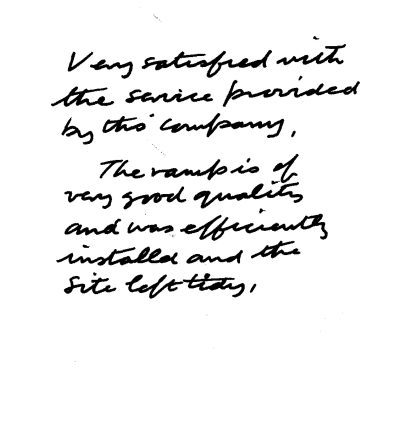 Very satisfied with
the service provided
by this company.
The ramp is of
very good quality
and was efficiently
installed and the
site left tidy.